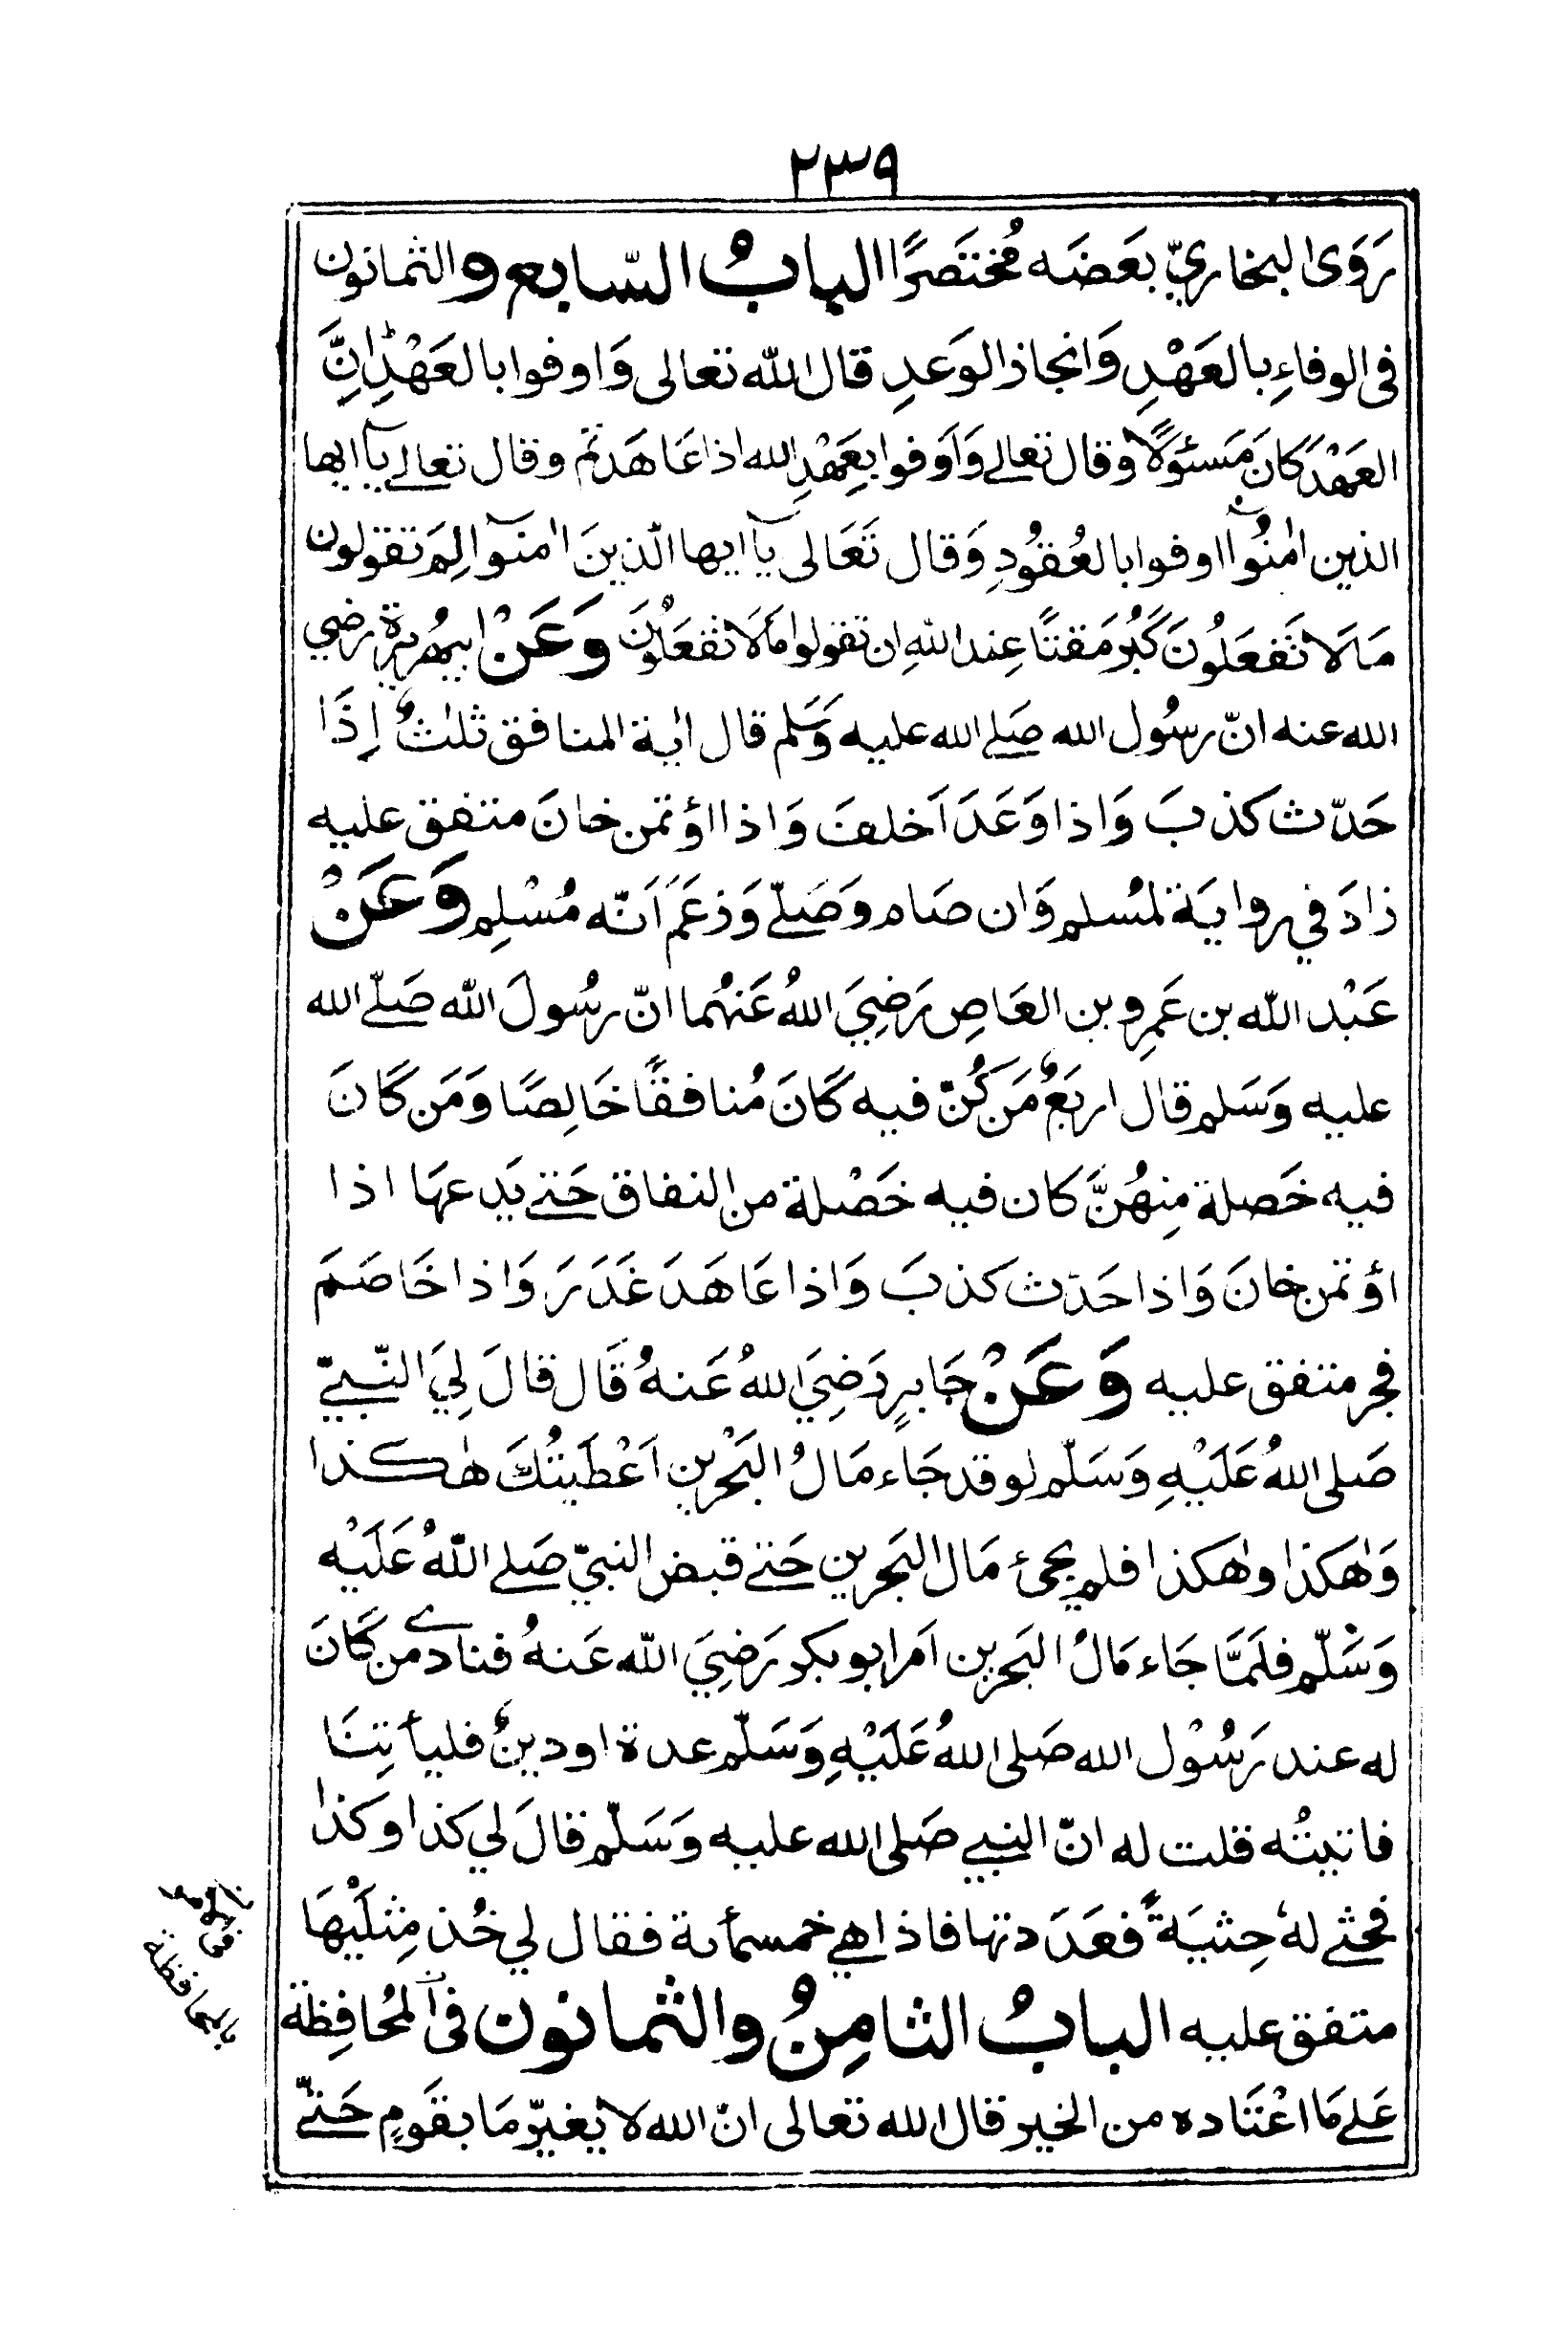 ٢٣٩
رَوَى البخاريّ بَعضَه مُختَصرًا البابُ السّابع والثمانون
فى الوفاءِ بالعَهْدِ وَانجاز الوَعدِ قال الله تعالى وَاوفوا بالعَهْدِ اِنَّ
العَهْدَ كانَ مَسئوُلًا وقال تعالے وَاَوفوا بعَهْدِ الله اذا عَاهَدتم وقال تعالے يآ ايها
الذين اٰمنُوآ اوفوا بالعُقُودِ وَقال تَعَالى يآ ايها الّذينَ اٰمنوآ لِمَ تقولون
مَا لَا تَفعَلُونَ كَبُرَ مَقتًا عِند اللهِ ان تقولوا مَا لَا تفعَلُونَ وَعَنْ ابيهُريرة رضي
الله عنه انّ رسُول الله صَلے الله عليه وَسَلم قال اٰية المنافق ثلٰثٌ اِذَا
حَدّث كذبَ وَاذا وَعَدَ اَخلفَ وَاذا اؤتمن خانَ متفق عليه
زادَ في رواية لمُسلم وَان صَام وَصَلّے وَزعَمَ اَنّه مُسْلِم وَعَنْ
عَبْد الله بن عَمرِو بن العَاصِ رَضِيَ اللهُ عَنهُما انّ رسُولَ الله صَلّے الله
عليه وَسَلم قال اربَعٌ مَن كُنّ فيه كَانَ مُنافقًا خَالِصًا وَمَن كَانَ
فيه خَصلة مِنهُنَّ كان فيه خَصْلة من النفاق حَتے يَدعهَا اذا
اؤتمن خانَ وَاذا حَدّث كذبَ وَاذا عَاهَدَ غَدَرَ وَاذا خَاصَمَ
فجر متفق عليه وَعَنْ جَابرٍ رَضِيَ اللهُ عَنهُ قَال قالَ لِيَ النّبيّ
صَلى اللهُ عَلَيْهِ وَسَلّم لو قد جَاء مَالُ البَحْرين اَعْطَيتُكَ هٰكذا
وَهٰكذا وهٰكذا فلم يجئ مَال البَحرين حَتے قبض النبيّ صَلے اللهُ عَلَيْه
وَسَلّم فلَمَّا جَاء مَالُ البَحرين اَمَر ابو بكر رَضِيَ الله عَنهُ فنادے من كَانَ
له عند رَسُوْل الله صَلى اللهُ عَلَيْهِ وَسَلّم عدة او دينٌ فليأتِنَا
فاتيتُه قلت له انّ النبي صَلى الله عليه وَسَلّم قالَ لي كذا وكذا
فحثے لهُ حِثيَةً فعَدَدتها فاذا هي خمسمأئة فقال لي خُذ مِثلَيْهَا
متفق عليه البابُ الثامِنُ والثمانون فى المُحَافِظة
عَلے مَا اعْتَاده من الخير قال الله تعالى انّ الله لا يغيرّ مَا بقَومٍ حَتّے
بالمحافظة